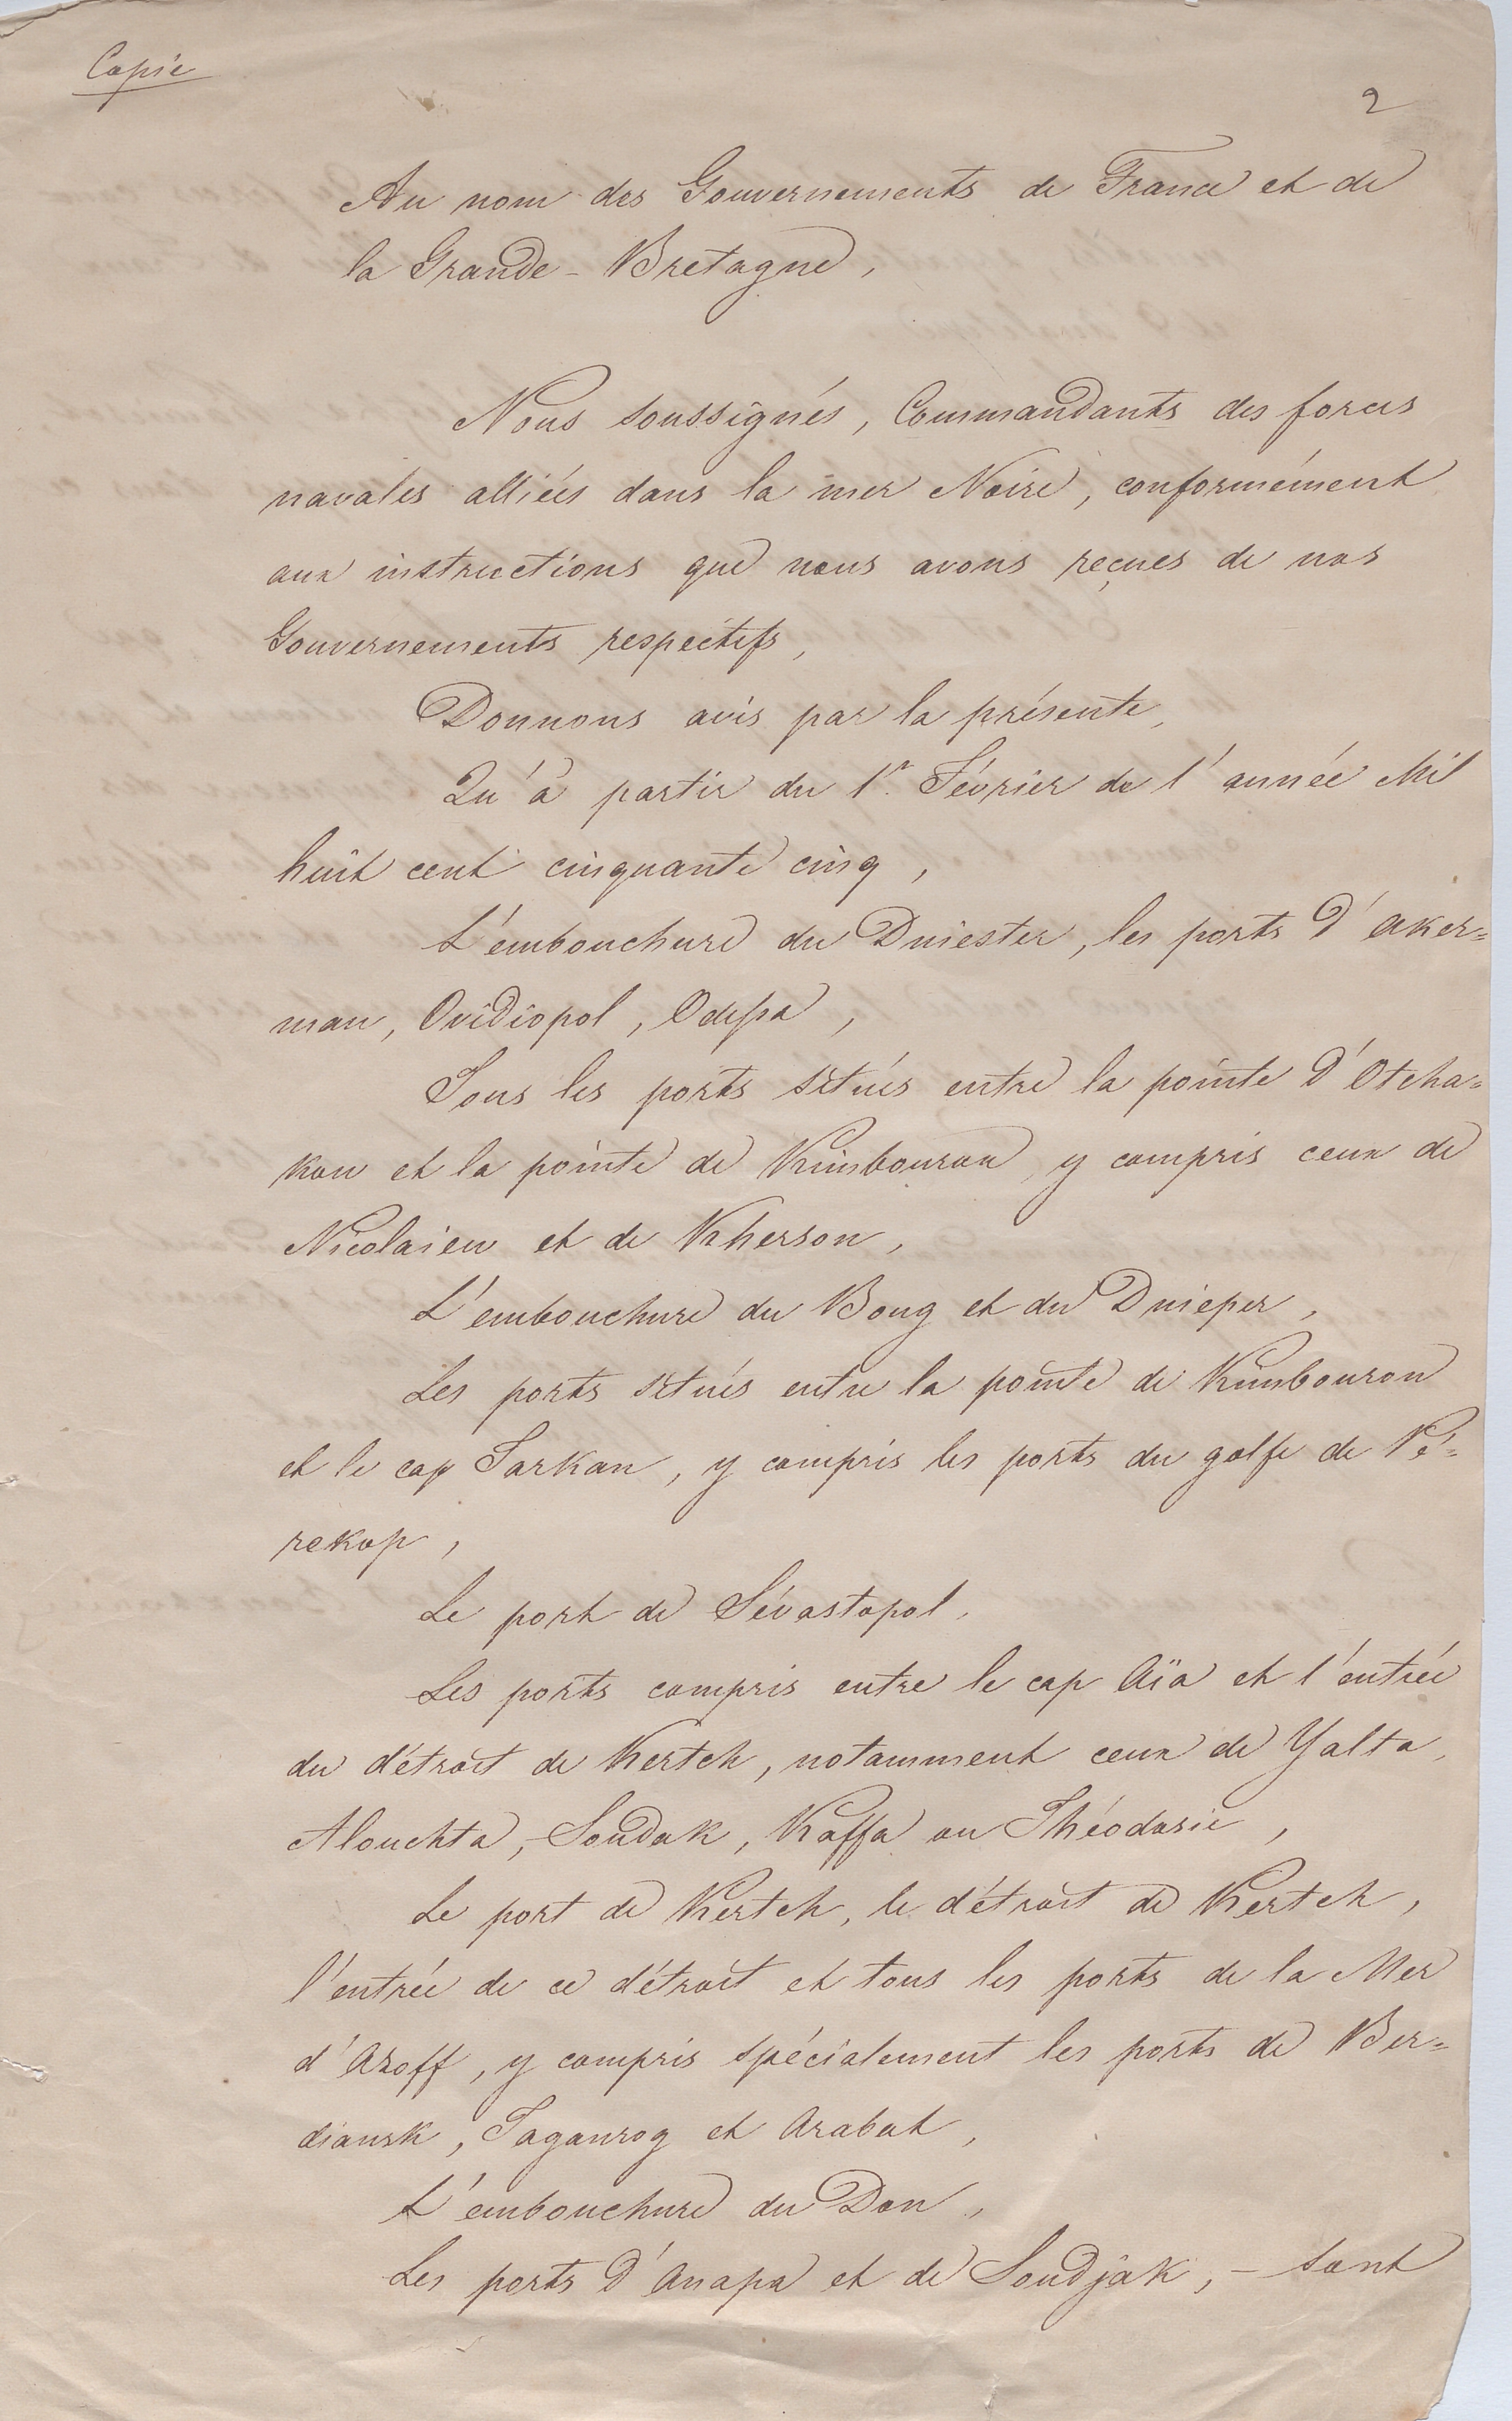 Copie
2
Au nom des Gouvernements de France et de
la Grande-Bretagne,
Nous soussignés, Commandants des forces
navales alliées dans la mer Noire, conformément
aux instructions que nous avons reçues de nos
Gouvernements respectifs,
Donnons avis par la présente,
Qu'à partir du 1r. Février de l'année Mil
huit cent cinquante cinq,
L'embouchure du Dniester, les ports d'Aker=
man, Ovidiopol, Odessa,
Tous les ports situés entre la pointe d'Otcha=
kow et la pointe de Kimbouron y compris ceux de
Nicolaiew et de Kherson,
L'embouchure du Boug et du Dnieper,
Les ports situés entre la pointe de Kimbouron
et le cap Tarkan, y compris les ports du golfe de Pé=
rekop,
Le port de Sévastopol,
Les ports compris entre le cap Aïa et l'entrée
du détroit de Kertch, notamment ceux de Yalta,
Alouchta, Soudak, Kaffa ou Théodosie,
Le port de Kertch, le détroit de Kertch,
l'entrée de ce détroit et tous les ports de la Mer
d'Azoff, y compris spécialement les ports de Ber=
diansk, Taganrog et Arabat,
L'embouchure du Don,
Les ports d'Anapa et de Soudjak, – sont